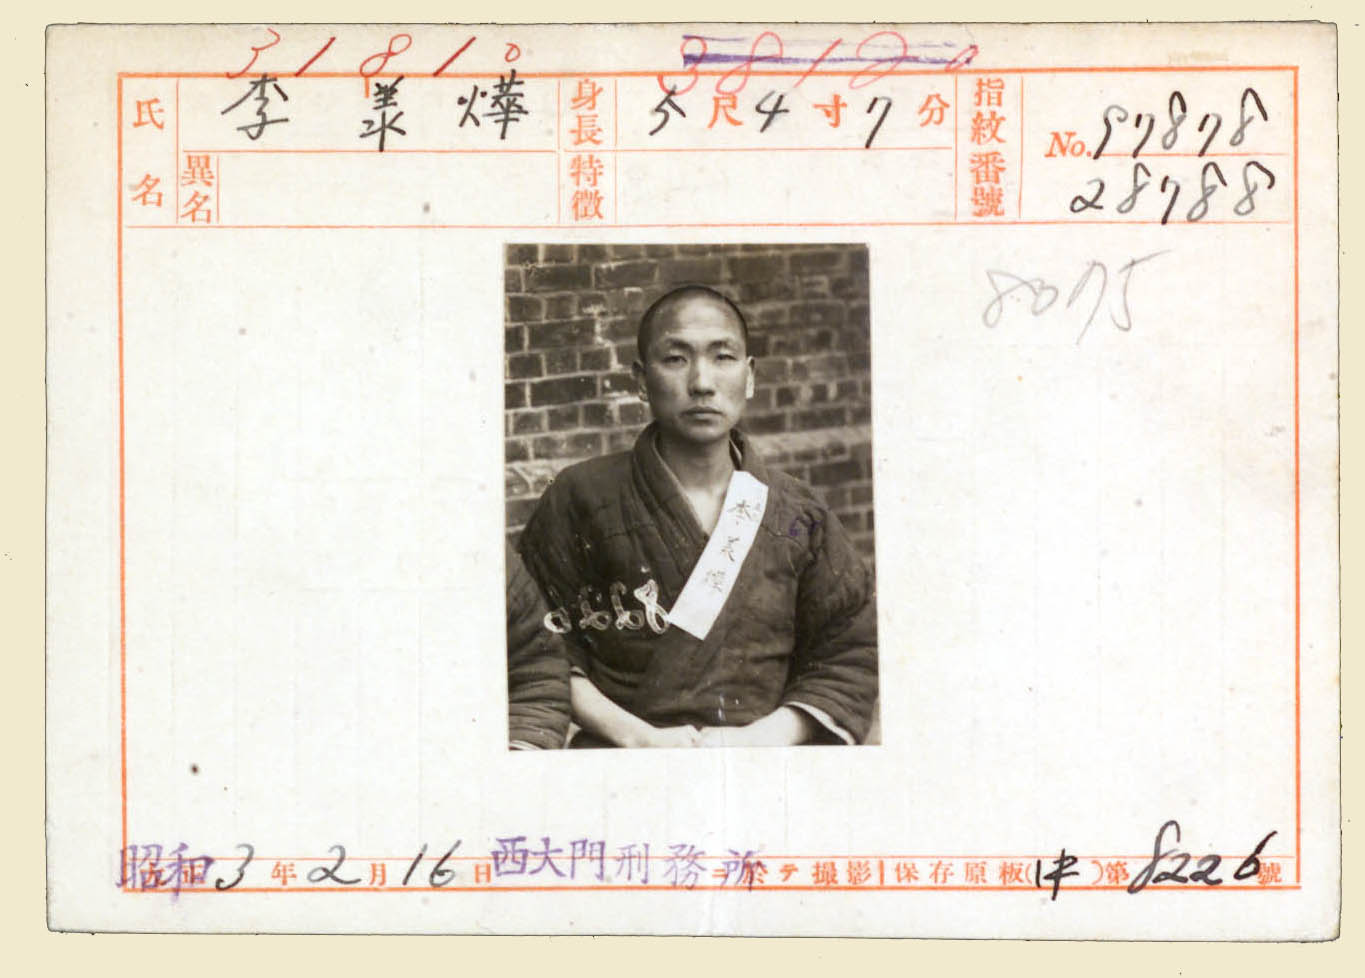 31810
38120
氏名 李義燁 身長 5尺4寸7分 指紋番號 No. 97878
異名 特徴 28788
8075
李義燁
昭和3年2月16日 西大門刑務所ニ於テ撮影 保存原板(中)第8226號